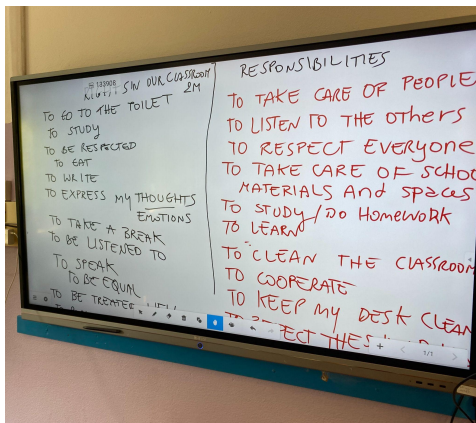 RIGHTS IN OUR CLASSROOM
2M
TO GO TO THE TOILET
TO STUDY
TO BE RESPECTED
TO EAT
TO WRITE
TO EXPRESS MY THOUGHTS
EMOTIONS
TO TAKE A BREAK
TO BE LISTENED TO
TO SPEAK
TO BE EQUAL
TO BE TREATED
RESPONSIBILITIES
TO TAKE CARE OF PEOPLE
TO LISTEN TO THE OTHERS
TO RESPECT EVERYONE
TO TAKE CARE OF SCHOO
MATERIALS And spaces
TO STUDY/DO HOMEWORK
TO LEARN
TO CLEAN THE CLASSROOM
TO COOPERATE
TO KEEP MY DESK CLEAN
1/1